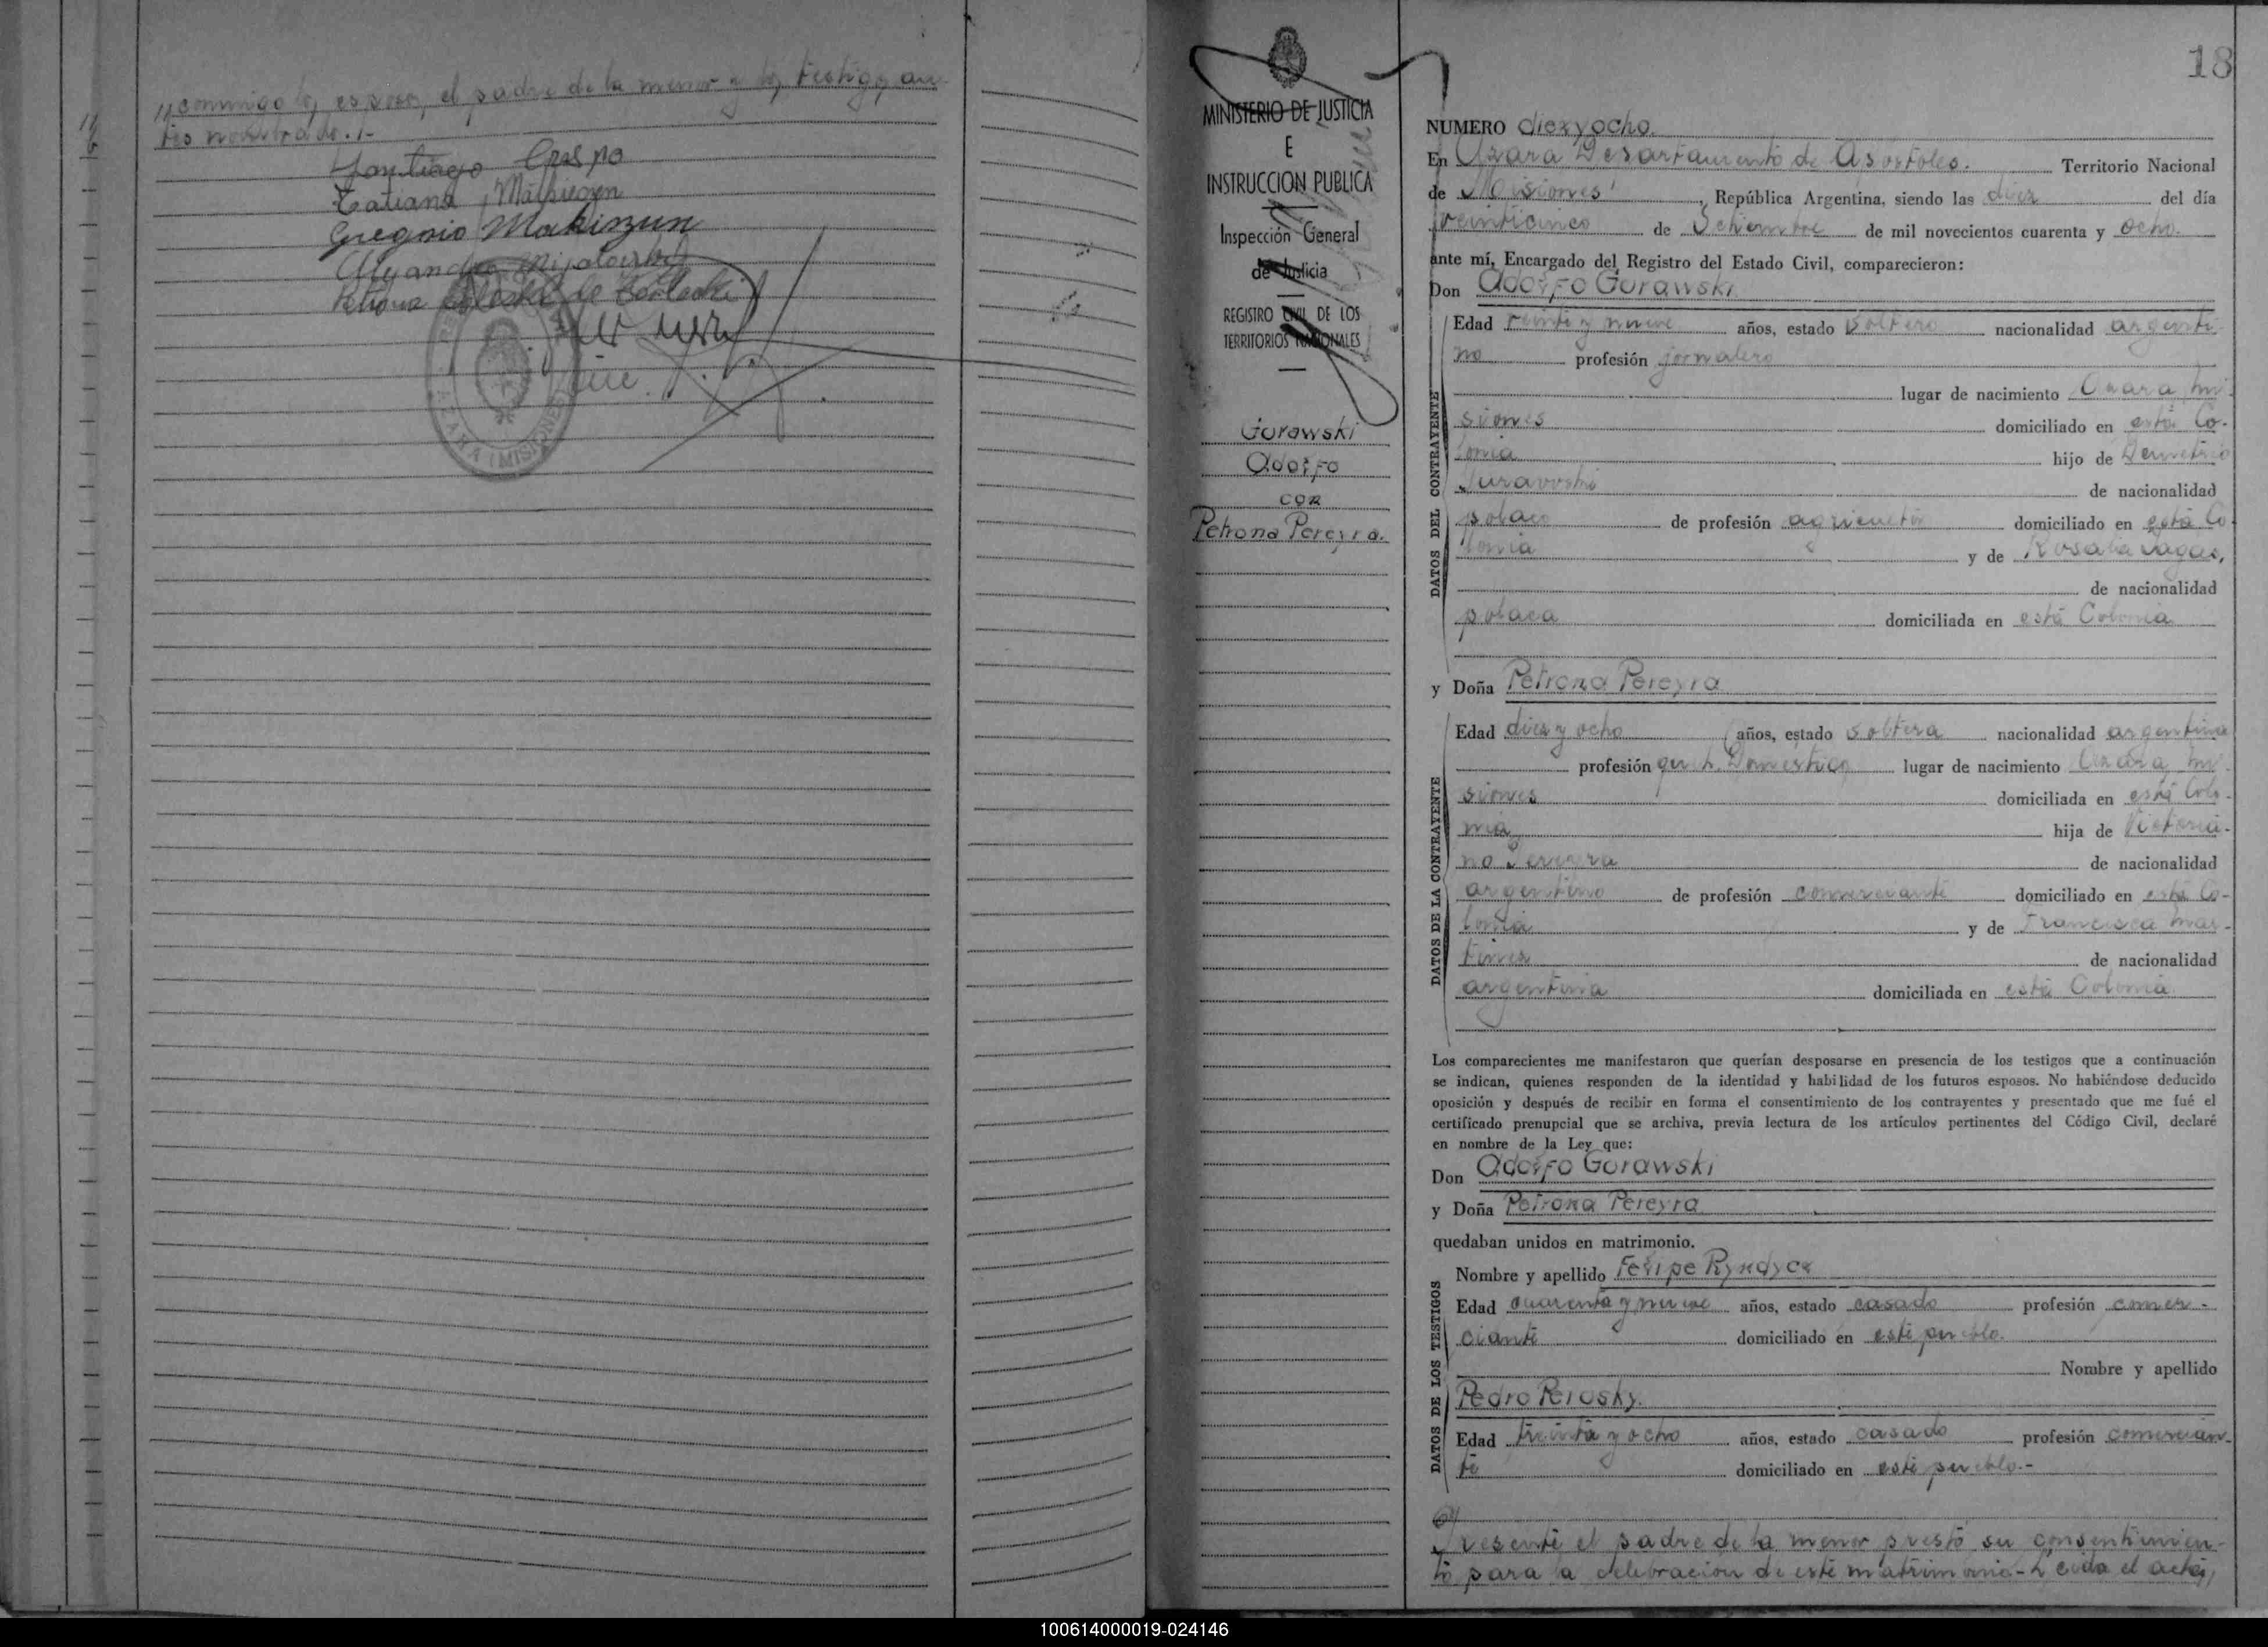 conmigo los esposos, el padre de la menor y los testigos an
tes nombrados.-
Santiago Crespo
Tatiana
Gregorio Makinzun
AZARA (MISIONES)
18
MINISTERIO DE JUSTICIA
E
INSTRUCCION PUBLICA
Inspección General
de Justicia
REGISTRO CIVIL DE LOS
TERRITORIOS NACIONALES
Gorawski
Adolfo
con
Petrona Pereyra.
NUMERO diez y ocho.
En Azara Departamento de Apostoles. Territorio Nacional
de Misiones, República Argentina, siendo las diez del día
veinticinco de Setiembre de mil novecientos cuarenta y ocho.
ante mí, Encargado del Registro del Estado Civil, comparecieron:
Don Adolfo Gorawski
DATOS DEL CONTRAYENTE
Edad veinte y nueve años, estado soltero nacionalidad argenti
no profesión jornalero
lugar de nacimiento Azara Mi-
siones domiciliado en esta Co-
lonia hijo de Demetrio
de nacionalidad
polaco de profesión agricultor domiciliado en esta Co-
lonia y de Rosalia
de nacionalidad
polaca domiciliada en esta Colonia
y Doña Petrona Pereyra
DATOS DE LA CONTRAYENTE
Edad diez y ocho años, estado soltera nacionalidad argentina
profesión qu h. Domésticos lugar de nacimiento Azara Mi-
siones domiciliada en esta Colo-
nia hija de Victoria-
no Pereyra de nacionalidad
argentino de profesión comerciante domiciliado en esta Co-
lonia y de Francisca Mar-
tinez de nacionalidad
argentina domiciliada en esta Colonia
Los comparecientes me manifestaron que querían desposarse en presencia de los testigos que a continuación
se indican, quienes responden de la identidad y habilidad de los futuros esposos. No habiéndose deducido
oposición y después de recibir en forma el consentimiento de los contrayentes y presentado que me fué el
certificado prenupcial que se archiva, previa lectura de los artículos pertinentes del Código Civil, declaré
en nombre de la Ley que:
Don Adolfo Gorawski
y Doña Petrona Pereyra
quedaban unidos en matrimonio.
DATOS DE LOS TESTIGOS
Nombre y apellido Felipe Ryndycz
Edad cuarenta y nueve años, estado casado profesión comer-
ciante domiciliado en este pueblo.
Nombre y apellido
Pedro Perosky.
Edad treinta y ocho años, estado casado profesión comercian-
te domiciliado en este pueblo.-
Presente el padre de la menor prestó su consentimien-
to para la celebración de este matrimonio- Leida el acta,
100614000019-024146